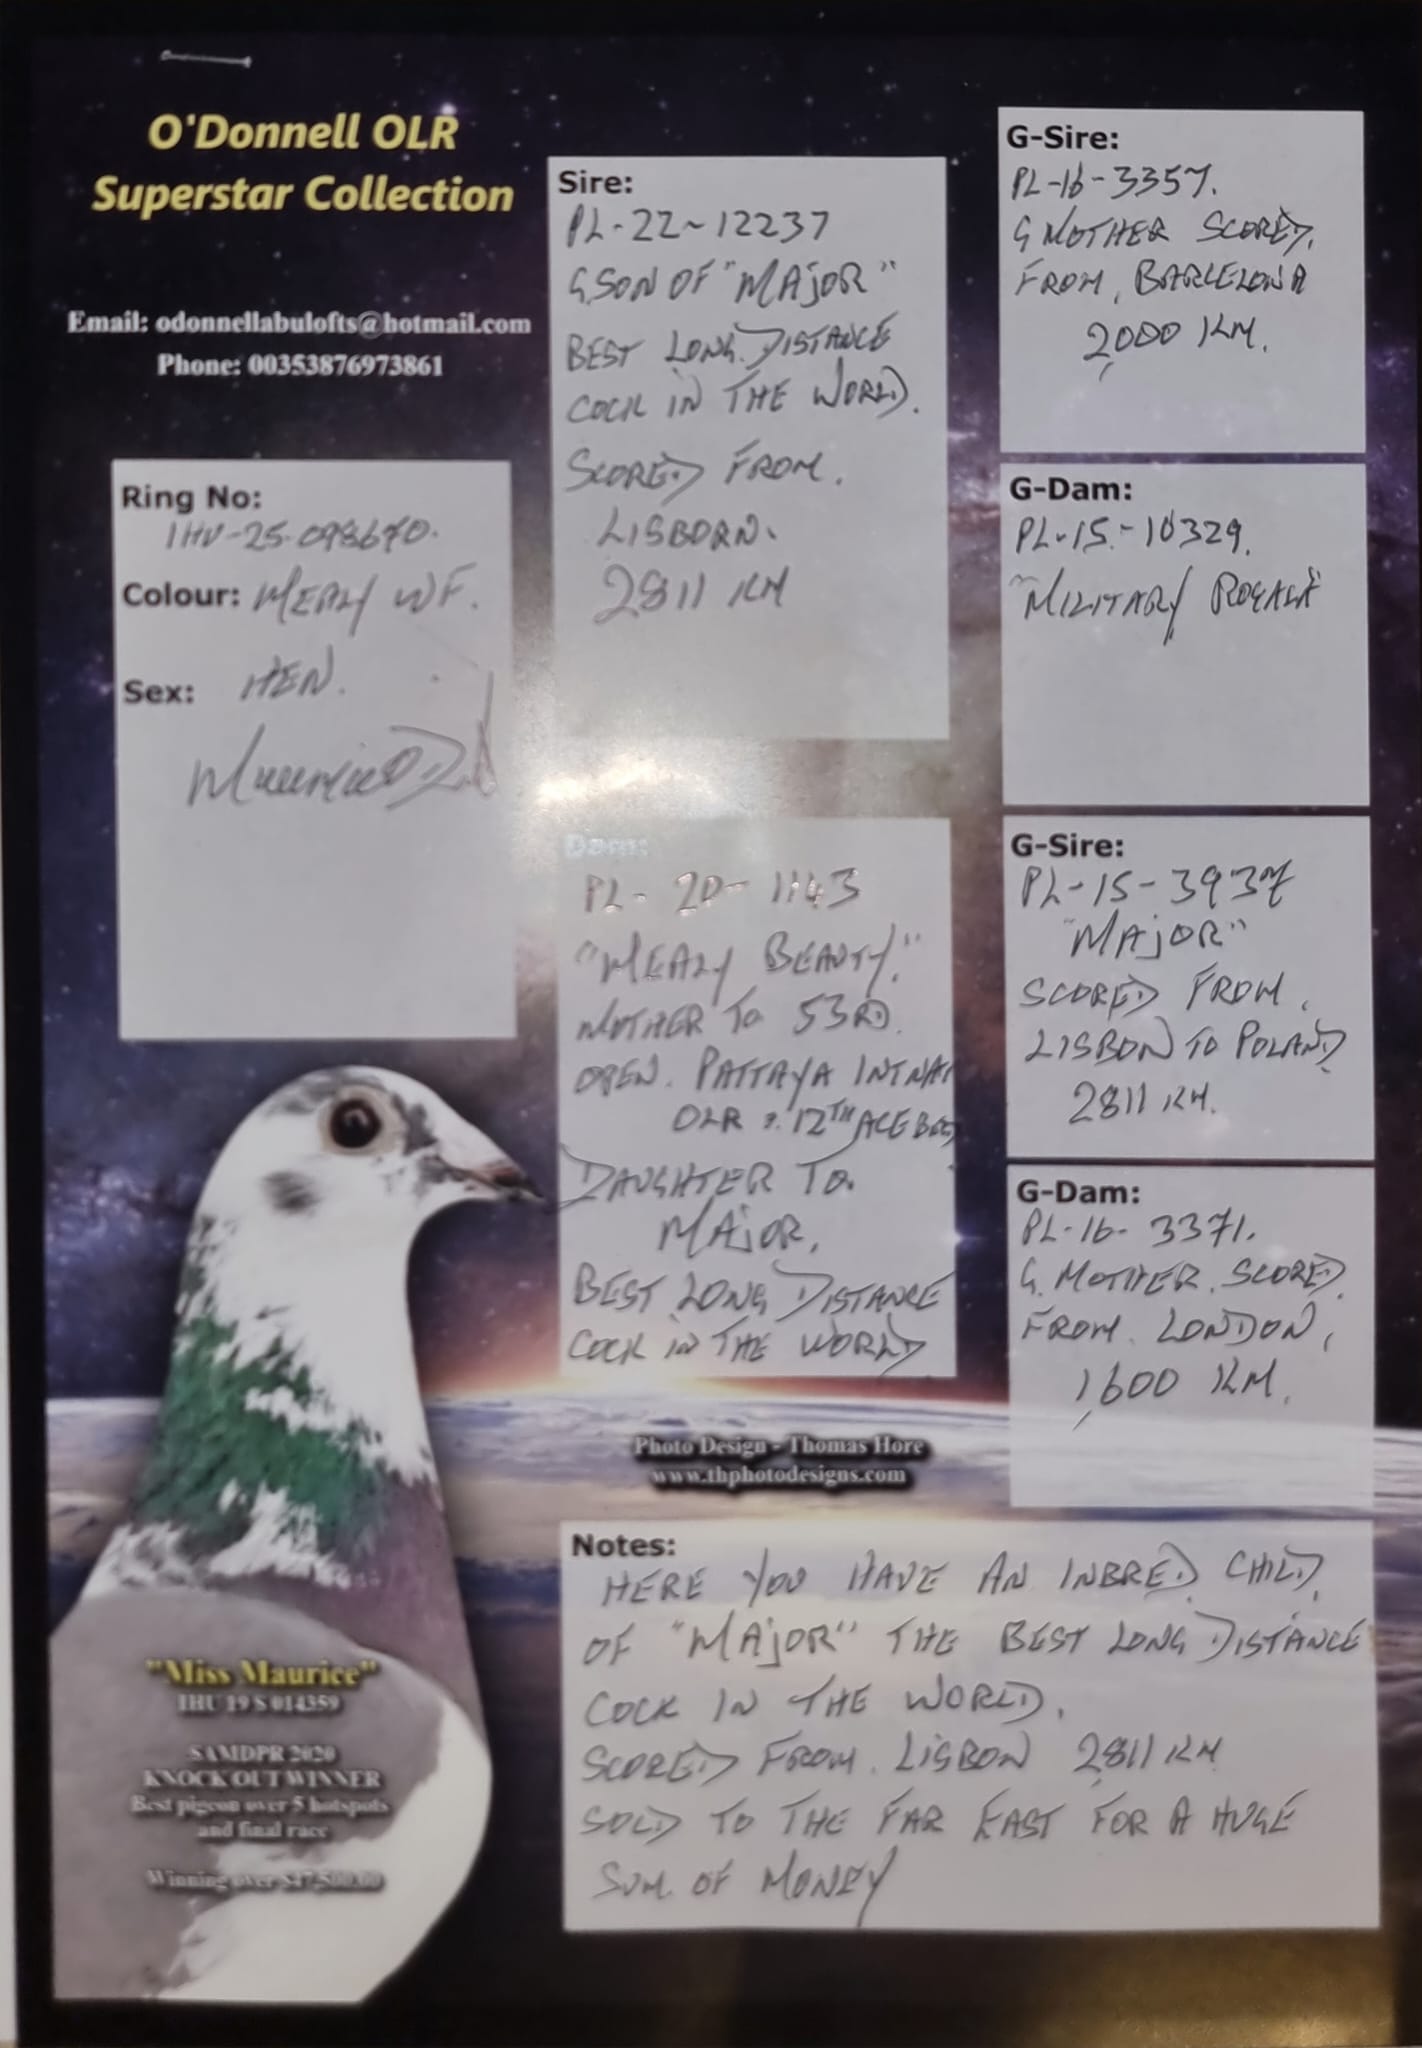 O'Donnell OLR
Superstar Collection
Email: odonnellabulofts@hotmail.com
Phone: 00353876973861
Ring No:
IHU-25-098670.
Colour: MEALY WF.
Sex: HEN.
Sire:
PL-22-12237
G.SON OF "MAJOR"
BEST LONG DISTANCE
COCK IN THE WORLD.
SCORED FROM.
LISBORN.
2811 KM
Dam:
PL-20-1143
"MEALY BEAUTY."
MOTHER TO 53RD.
OPEN. PATTAYA INTNA
OLR & 12TH ACE
DAUGHTER TO.
MAJOR,
BEST LONG DISTANCE
COCK IN THE WORLD
G-Sire:
PL-16-3357.
G MOTHER SCORED,
FROM, BARCELONA
2,000 KM.
G-Dam:
PL-15-10329.
"MILITARY ROYALE"
G-Sire:
PL-15-3937
"MAJOR"
SCORED FROM.
LISBON TO POLAND
2811 KM.
G-Dam:
PL-16-3371.
G. MOTHER SCORED
FROM. LONDON,
1,600 KM.
Photo Design - Thomas Hore
www.thphotodesigns.com
Notes:
HERE YOU HAVE AN INBRED CHILD
OF "MAJOR" THE BEST LONG DISTANCE
COCK IN THE WORLD,
SCORED FROM. LISBON 2811 KM
SOLD TO THE FAR EAST FOR A HUGE
SUM. OF MONEY
"Miss Maurice"
IHU 19 S 014359
SAMDPR 2020
KNOCK OUT WINNER
Best pigeon over 5 hotspots
and final race
Winning over $47,500.00